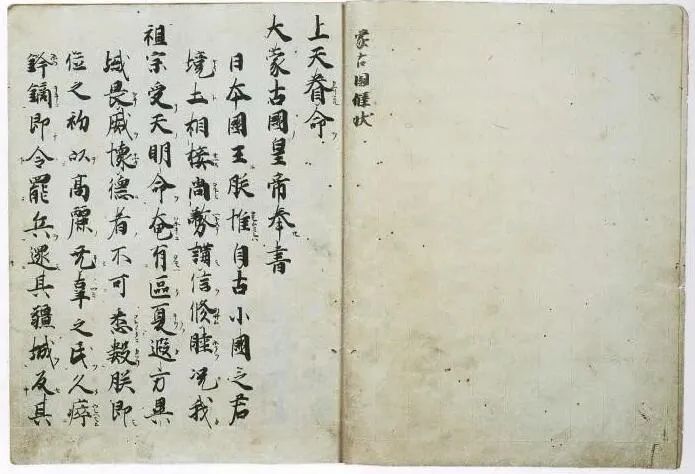 蒙古國牒状
上天眷命
大蒙古國皇帝奉書
日本國王朕惟自古小國之君
境土相接尚務講信脩睦况我
祖宗受天明命奄有區夏遐方異
域畏威懷德者不可悉數朕即
位之初以高麗无辜之民久瘁
鋒鏑即令罷兵還其疆域反其